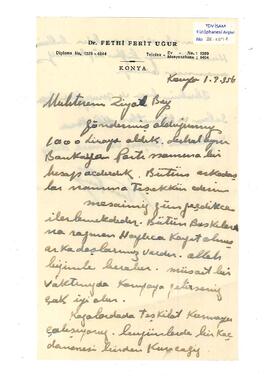 TDV İSAM
Kütüphanesi Arşivi
No
Dr. FETHİ FERİT UĞUR
Diploma No.
Telefon
Ev No.
Muayenehane
KONYA
Konya 1.9.956
Muhterem Ziyad Bey
Göndermiş olduğunuz
1000 lirayı aldık. derhal aynı
Bankaya Parti namına bir
hesap açdırdık. Bütün arkadaş
lar namına Teşekkür ederim
mesaimiz gün geçdikce
ilerlemekdedir. Bütün Baskılara
na rağmen Haylıca Kayıt olmuş
arkadaşlarımız vardır. allah
beraber. müsait bir
vaktınızda Konyaya gelirseniz
çok iyi olur.
Kazalardada Teşkilat Kurmaya
çalışıyoruz. bugünlerde bir Kaç
danesini birden Kuracağız